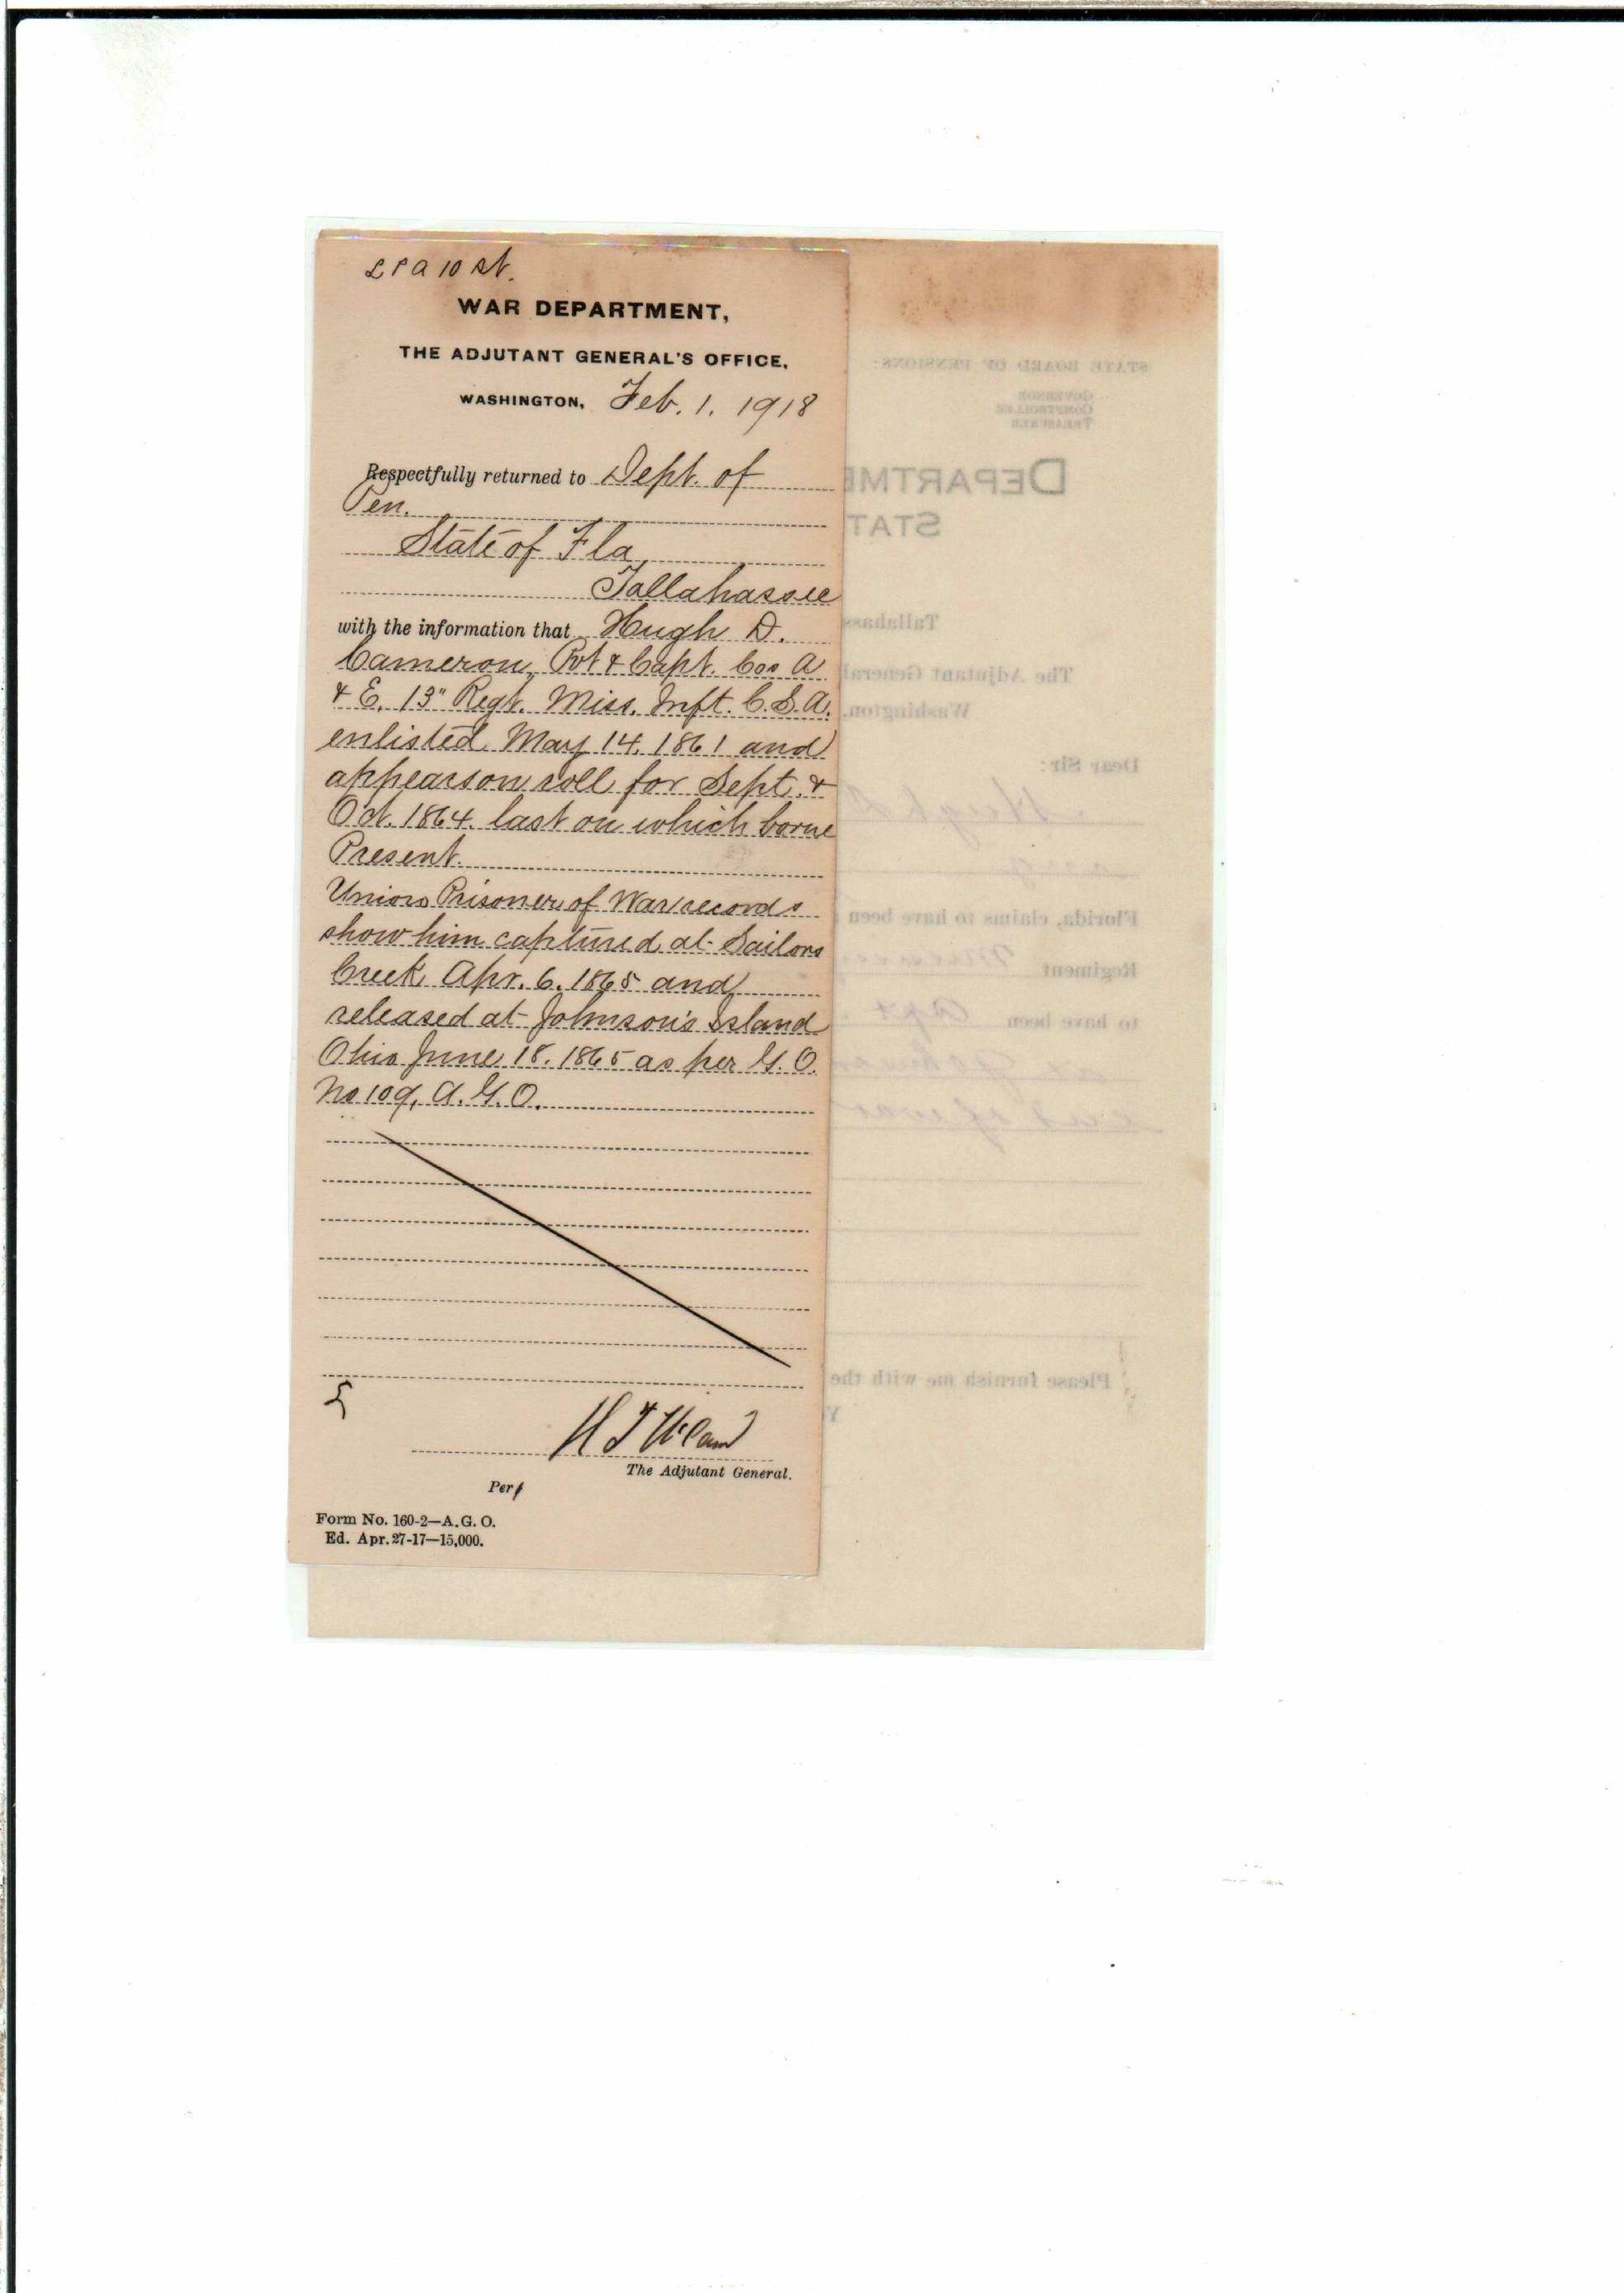 WAR DEPARTMENT,
THE ADJUTANT GENERAL'S OFFICE,
WASHINGTON, Feb. 1. 1918
Respectfully returned to Dept. of
Pen.
State of Fla
Tallahassee
with the information that Hugh D.
Cameron, Pvt & Capt. Cos A
& E. 13" Regt. Miss. Inft. C.S.A.
enlisted May 14. 1861 and
appears on roll for Sept. &
Oct. 1864. last on which borne
Present.
Union Prisoner of War records
show him captured at Sailors
Creek Apr. 6. 1865 and
released at Johnson's Island
Ohio June 18. 1865 as per G. O.
No 109, A. G. O.
The Adjutant General.
Per
Form No. 160-2—A.G.O.
Ed. Apr. 27-17—15,000.
STATE BOARD OF PENSIONS
GOVERNOR
COMPTROLLER
TREASURER
DEPARTME
STAT
Tallahass
The Adjutant General
Washington.
Dear Sir:
Hugh
Florida, claims to have been
Regiment
to have been Capt
end of war
Please furnish me with the